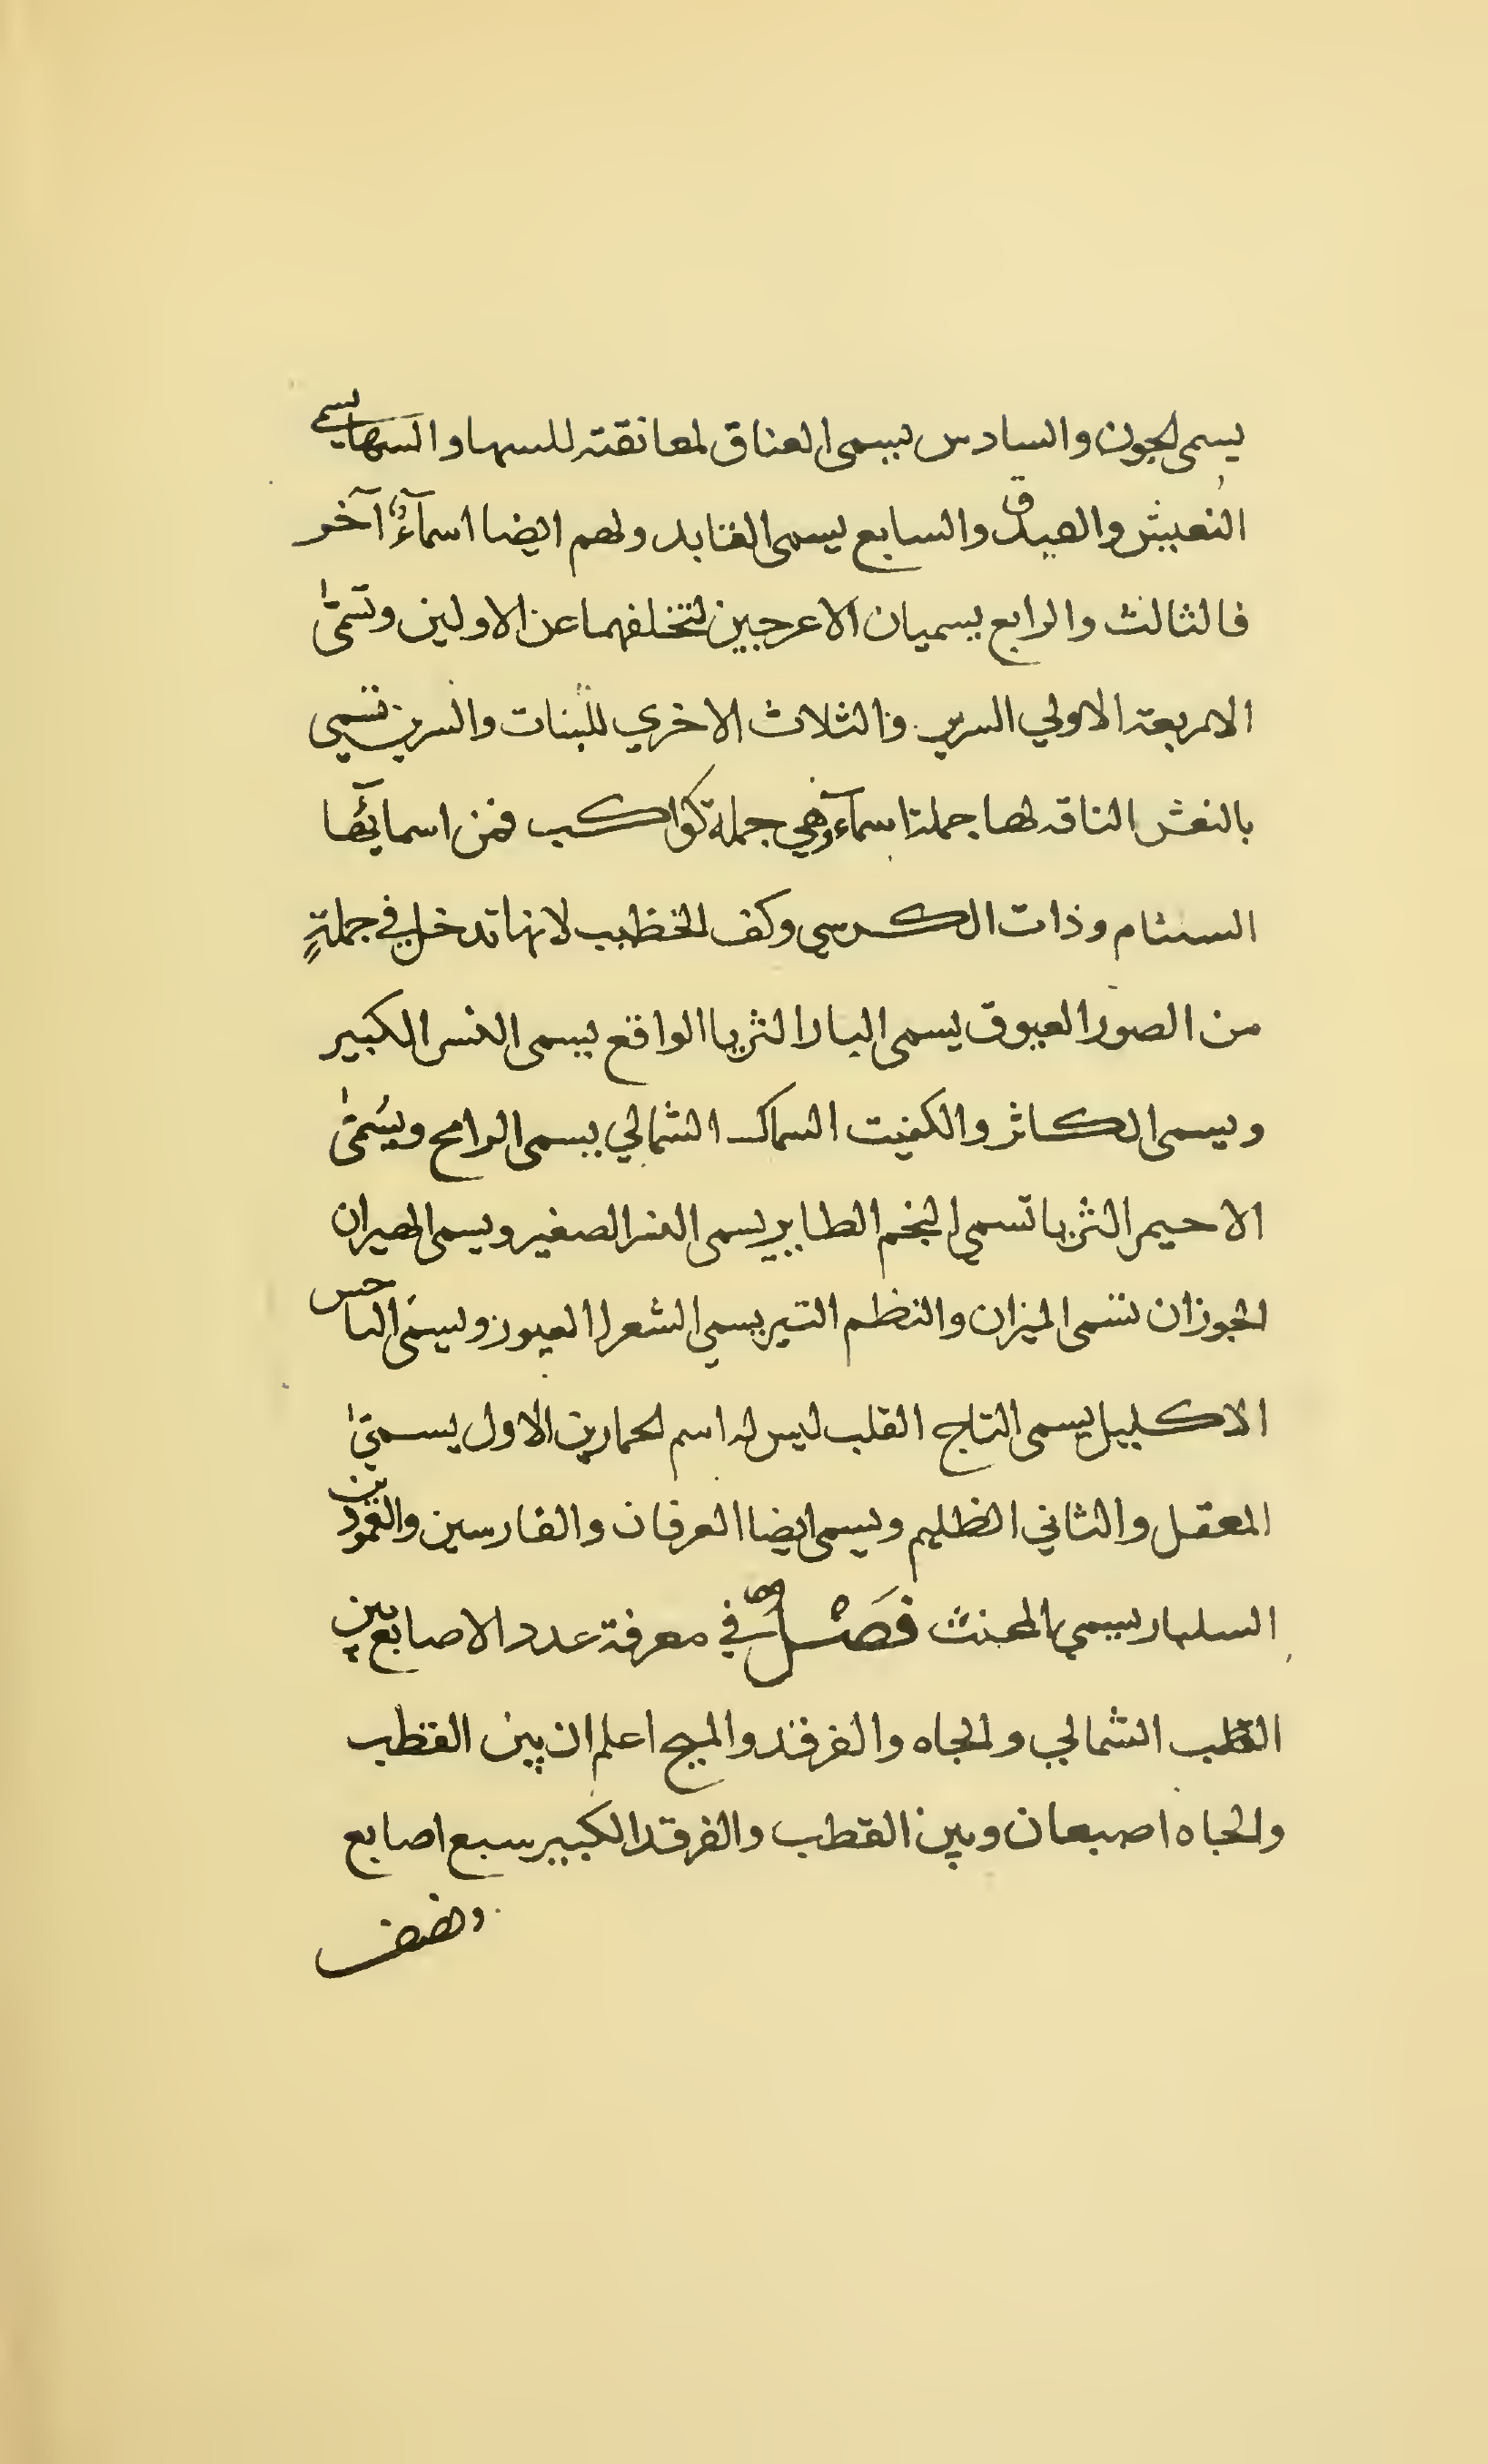 يسمى لجون والسادس يسمى العناق لمعانقته للسها والسها يسمى
النعيش والصيدق والسابع يسمى القايد ولهم ايضا اسمآءٌ آخر
فالثالث والرابع يسميان الاعرجين لتخلفهما عن الاولين وتسمىٰ
الاربعة الاولي السرير والثلاث الاخري للبنات والسرير تسمي
بالنعش الناقه لها جملة اسمآء وهي جملة كواكب فمن اسمائها
السنام وذات الكرسي وكف الخظيب لانها تدخل في جملةٍ
من الصور العيوق يسمى البار الثريا الواقع يسمى النسر الكبير
ويسمى الكاثر والكفيت السماك الشمالي يسمى الرامح ويسُمىٰ
الاحيمر الثريا تسمي النجم الطاير يسمى النسر الصغير ويسمى الهيران
الجوزان تسمى الميزان والنظم التير يسمي الشعرا العبور ويسمى الناجس
الاكليل يسمى التاج القلب ليس له اسم لحمارين الاول يسمىٰ
المعقل والثاني الظليم ويسمى ايضا العرفان والفارسين والعمودين
السلبار يسمي المحنث فَصْلٌ في معرفة عدد الاصابع بين
القطب الشمالي والجاه والفرقد والميخ اعلم ان بين القطب
والجاه اصبعان وبين القطب والفرقد الكبير سبع اصابع
ونصف